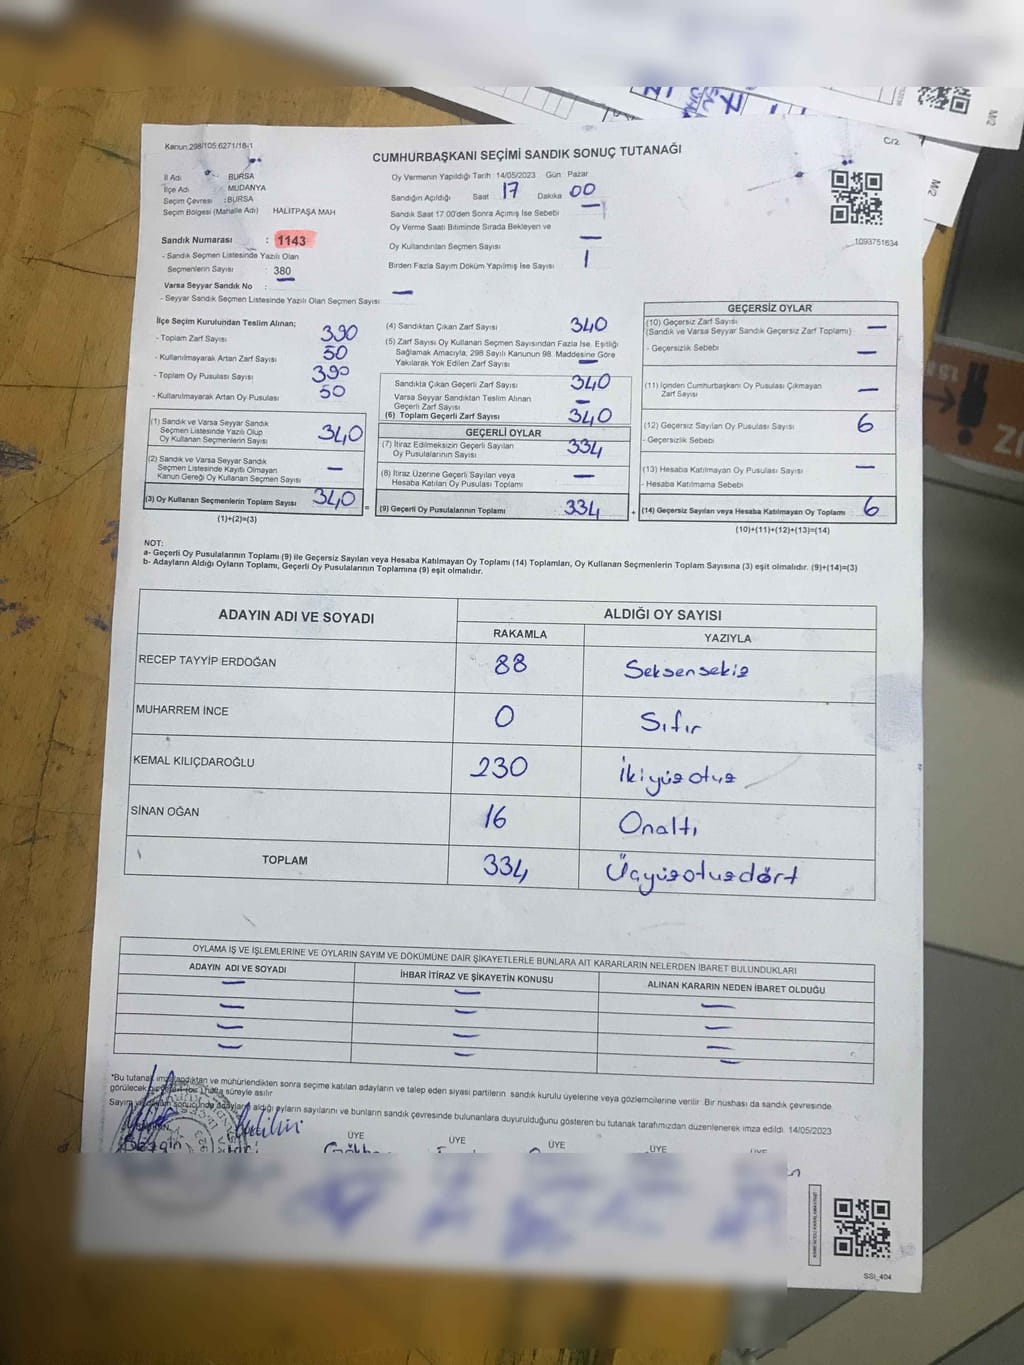 Kanun 298/105:6271/16-1
C/2
M/2
M/2
CUMHURBAŞKANI SEÇİMİ SANDIK SONUÇ TUTANAĞI
İl Adı : BURSA
İlçe Adı : MUDANYA
Seçim Çevresi : BURSA
Seçim Bölgesi (Mahalle Adı) HALİTPAŞA MAH
Sandık Numarası : 1143
- Sandık Seçmen Listesinde Yazılı Olan
Seçmenlerin Sayısı : 380
Varsa Seyyar Sandık No :
- Seyyar Sandık Seçmen Listesinde Yazılı Olan Seçmen Sayısı : —
Oy Vermenin Yapıldığı Tarih : 14/05/2023 Gün Pazar
Sandığın Açıldığı Saat 17 Dakika 00
Sandık Saat 17:00'den Sonra Açımış İse Sebebi —
Oy Verme Saati Bitiminde Sırada Bekleyen ve
Oy Kullandırılan Seçmen Sayısı —
Birden Fazla Sayım Döküm Yapılmış İse Sayısı 1
1093751634
İlçe Seçim Kurulundan Teslim Alınan;
- Toplam Zarf Sayısı 390
- Kullanılmayarak Artan Zarf Sayısı 50
- Toplam Oy Pusulası Sayısı 390
- Kullanılmayarak Artan Oy Pusulası 50
(1) Sandık ve Varsa Seyyar Sandık
Seçmen Listesinde Yazılı Olup
Oy Kullanan Seçmenlerin Sayısı 340
(2) Sandık ve Varsa Seyyar Sandık
Seçmen Listesinde Kayıtlı Olmayan
Kanun Gereği Oy Kullanan Seçmen Sayısı —
(3) Oy Kullanan Seçmenlerin Toplam Sayısı 340 =
(1)+(2)=(3)
(4) Sandıktan Çıkan Zarf Sayısı 340
(5) Zarf Sayısı Oy Kullanan Seçmen Sayısından Fazla İse, Eşitliği
Sağlamak Amacıyla; 298 Sayılı Kanunun 98. Maddesine Göre
Yakılarak Yok Edilen Zarf Sayısı —
Sandıkta Çıkan Geçerli Zarf Sayısı 340
Varsa Seyyar Sandıktan Teslim Alınan
Geçerli Zarf Sayısı —
(6) Toplam Geçerli Zarf Sayısı 340
GEÇERLİ OYLAR
(7) İtiraz Edilmeksizin Geçerli Sayılan
Oy Pusulalarının Sayısı 334
(8) İtiraz Üzerine Geçerli Sayılan veya
Hesaba Katılan Oy Pusulası Toplamı —
(9) Geçerli Oy Pusulalarının Toplamı 334 +
GEÇERSİZ OYLAR
(10) Geçersiz Zarf Sayısı
(Sandık ve Varsa Seyyar Sandık Geçersiz Zarf Toplamı) —
- Geçersizlik Sebebi —
(11) İçinden Cumhurbaşkanı Oy Pusulası Çıkmayan
Zarf Sayısı —
(12) Geçersiz Sayılan Oy Pusulası Sayısı 6
- Geçersizlik Sebebi
(13) Hesaba Katılmayan Oy Pusulası Sayısı —
- Hesaba Katılmama Sebebi
(14) Geçersiz Sayılan veya Hesaba Katılmayan Oy Toplamı 6
(10)+(11)+(12)+(13)=(14)
NOT:
a- Geçerli Oy Pusulalarının Toplamı (9) ile Geçersiz Sayılan veya Hesaba Katılmayan Oy Toplamı (14) Toplamları, Oy Kullanan Seçmenlerin Toplam Sayısına (3) eşit olmalıdır. (9)+(14)=(3)
b- Adayların Aldığı Oyların Toplamı, Geçerli Oy Pusulalarının Toplamına (9) eşit olmalıdır.
ADAYIN ADI VE SOYADI ALDIĞI OY SAYISI
RAKAMLA YAZIYLA
RECEP TAYYİP ERDOĞAN 88 Seksensekiz
MUHARREM İNCE 0 Sıfır
KEMAL KILIÇDAROĞLU 230 İkiyüzotuz
SİNAN OĞAN 16 Onaltı
TOPLAM 334 Üçyüzotuzdört
OYLAMA İŞ VE İŞLEMLERİNE VE OYLARIN SAYIM VE DÖKÜMÜNE DAİR ŞİKAYETLERLE BUNLARA AİT KARARLARIN NELERDEN İBARET BULUNDUKLARI
ADAYIN ADI VE SOYADI İHBAR İTİRAZ VE ŞİKAYETİN KONUSU ALINAN KARARIN NEDEN İBARET OLDUĞU
— — —
— — —
— — —
— — —
*Bu tutanak imzalandıktan ve mühürlendikten sonra seçime katılan adayların ve talep eden siyasi partilerin sandık kurulu üyelerine veya gözlemcilerine verilir. Bir nüshası da sandık çevresinde
görülecek bir yere bir hafta süreyle asılır
Sayım ve döküm sonucunda adayların aldığı oyların sayılarını ve bunların sandık çevresinde bulunanlara duyurulduğunu gösteren bu tutanak tarafımızdan düzenlenerek imza edildi. 14/05/2023
ÜYE ÜYE ÜYE ÜYE ÜYE
SSİ_404